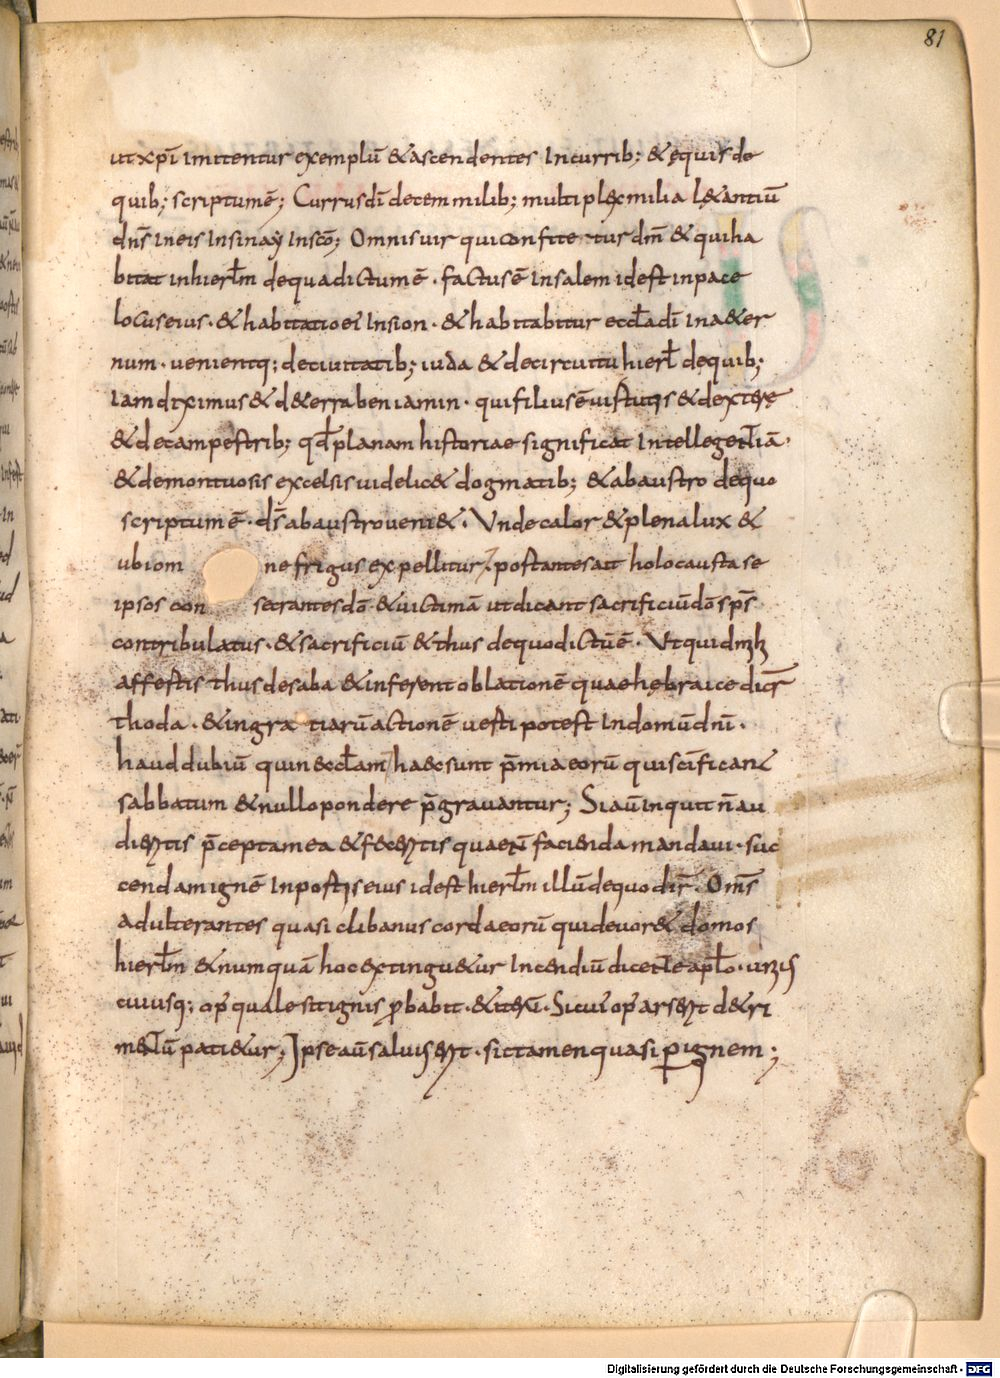 81
ut xp̄i imitentur exemplū & ascendentes In currib; & equis de
quib; scriptum ē; Currus dī decem milib; multiplex milia lętantiū
dn̄s In eis In sinay In scō; Omnis uir qui confitetur dn̄i & qui ha
bitat in hierl̄m de qua dictum ē · factus ē In salem id est in pace
locus eius · & habitatio ei' In sion · & habitabitur eccl̄a dī In a&er
num · uenientq; de ciuitatib; iuda & de circuitu hierl̄ de quib;
Iam diximus & d& erra beniamin · qui filius ē uirtutis & dexterę
& de campestrib; qd̄ planam historiae significat Intellegentiā ·
& de montuosis excelsis uidelic& dogmatib; & ab austro de quo
scriptum ē · dr̄ ab austro ueni& · Unde calor & plena lux &
ubi om ne frigus expellitur · portantes aut holocausta se
ipsos con secrantes dō & uictimā ut dicant sacrificiū dō sp̄s
contribulatus · & sacrificiū & thus de quo dictū ē · Ut quid mihi
affertis thus de saba & inferent oblationē quae hebraice dicr̄
thoda · & in gra tiarū actionē uerti potest In domū dn̄i ·
haud dubiū quin & eccl̄am haec sunt p̄mia eorū qui sc̄ificant
sabbatum & nullo pondere p̄grauantur; Si aū inquit n̄ au
dieritis p̄cepta mea & feceritis quae n̄ facienda mandaui · suc
cendam ignē In portis eius id est hierl̄m illū de quo dir̄ · Om̄s
adulterantes quasi clibanus corda eorū qui deuor& domos
hierl̄m & numquā hoc extingu&ur Incendiū dicente apl̄o · uniuis
cuiusq; op' quale sit ignis p̱babit · & iterū · Si cui' op' arserit d&ri
m&ū pati&ur; Ipse aū saluus erit · sic tamen quasi p̱ ignem;
Digitalisierung gefördert durch die Deutsche Forschungsgemeinschaft - DFG